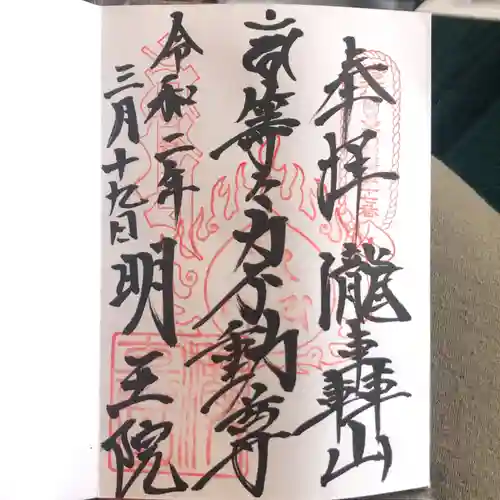 奉拝 瀧轟山
等々力不動尊
令和二年
三月十九日
明王院